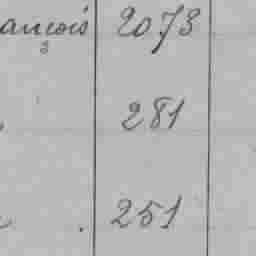 ançois 2073
281
. 251